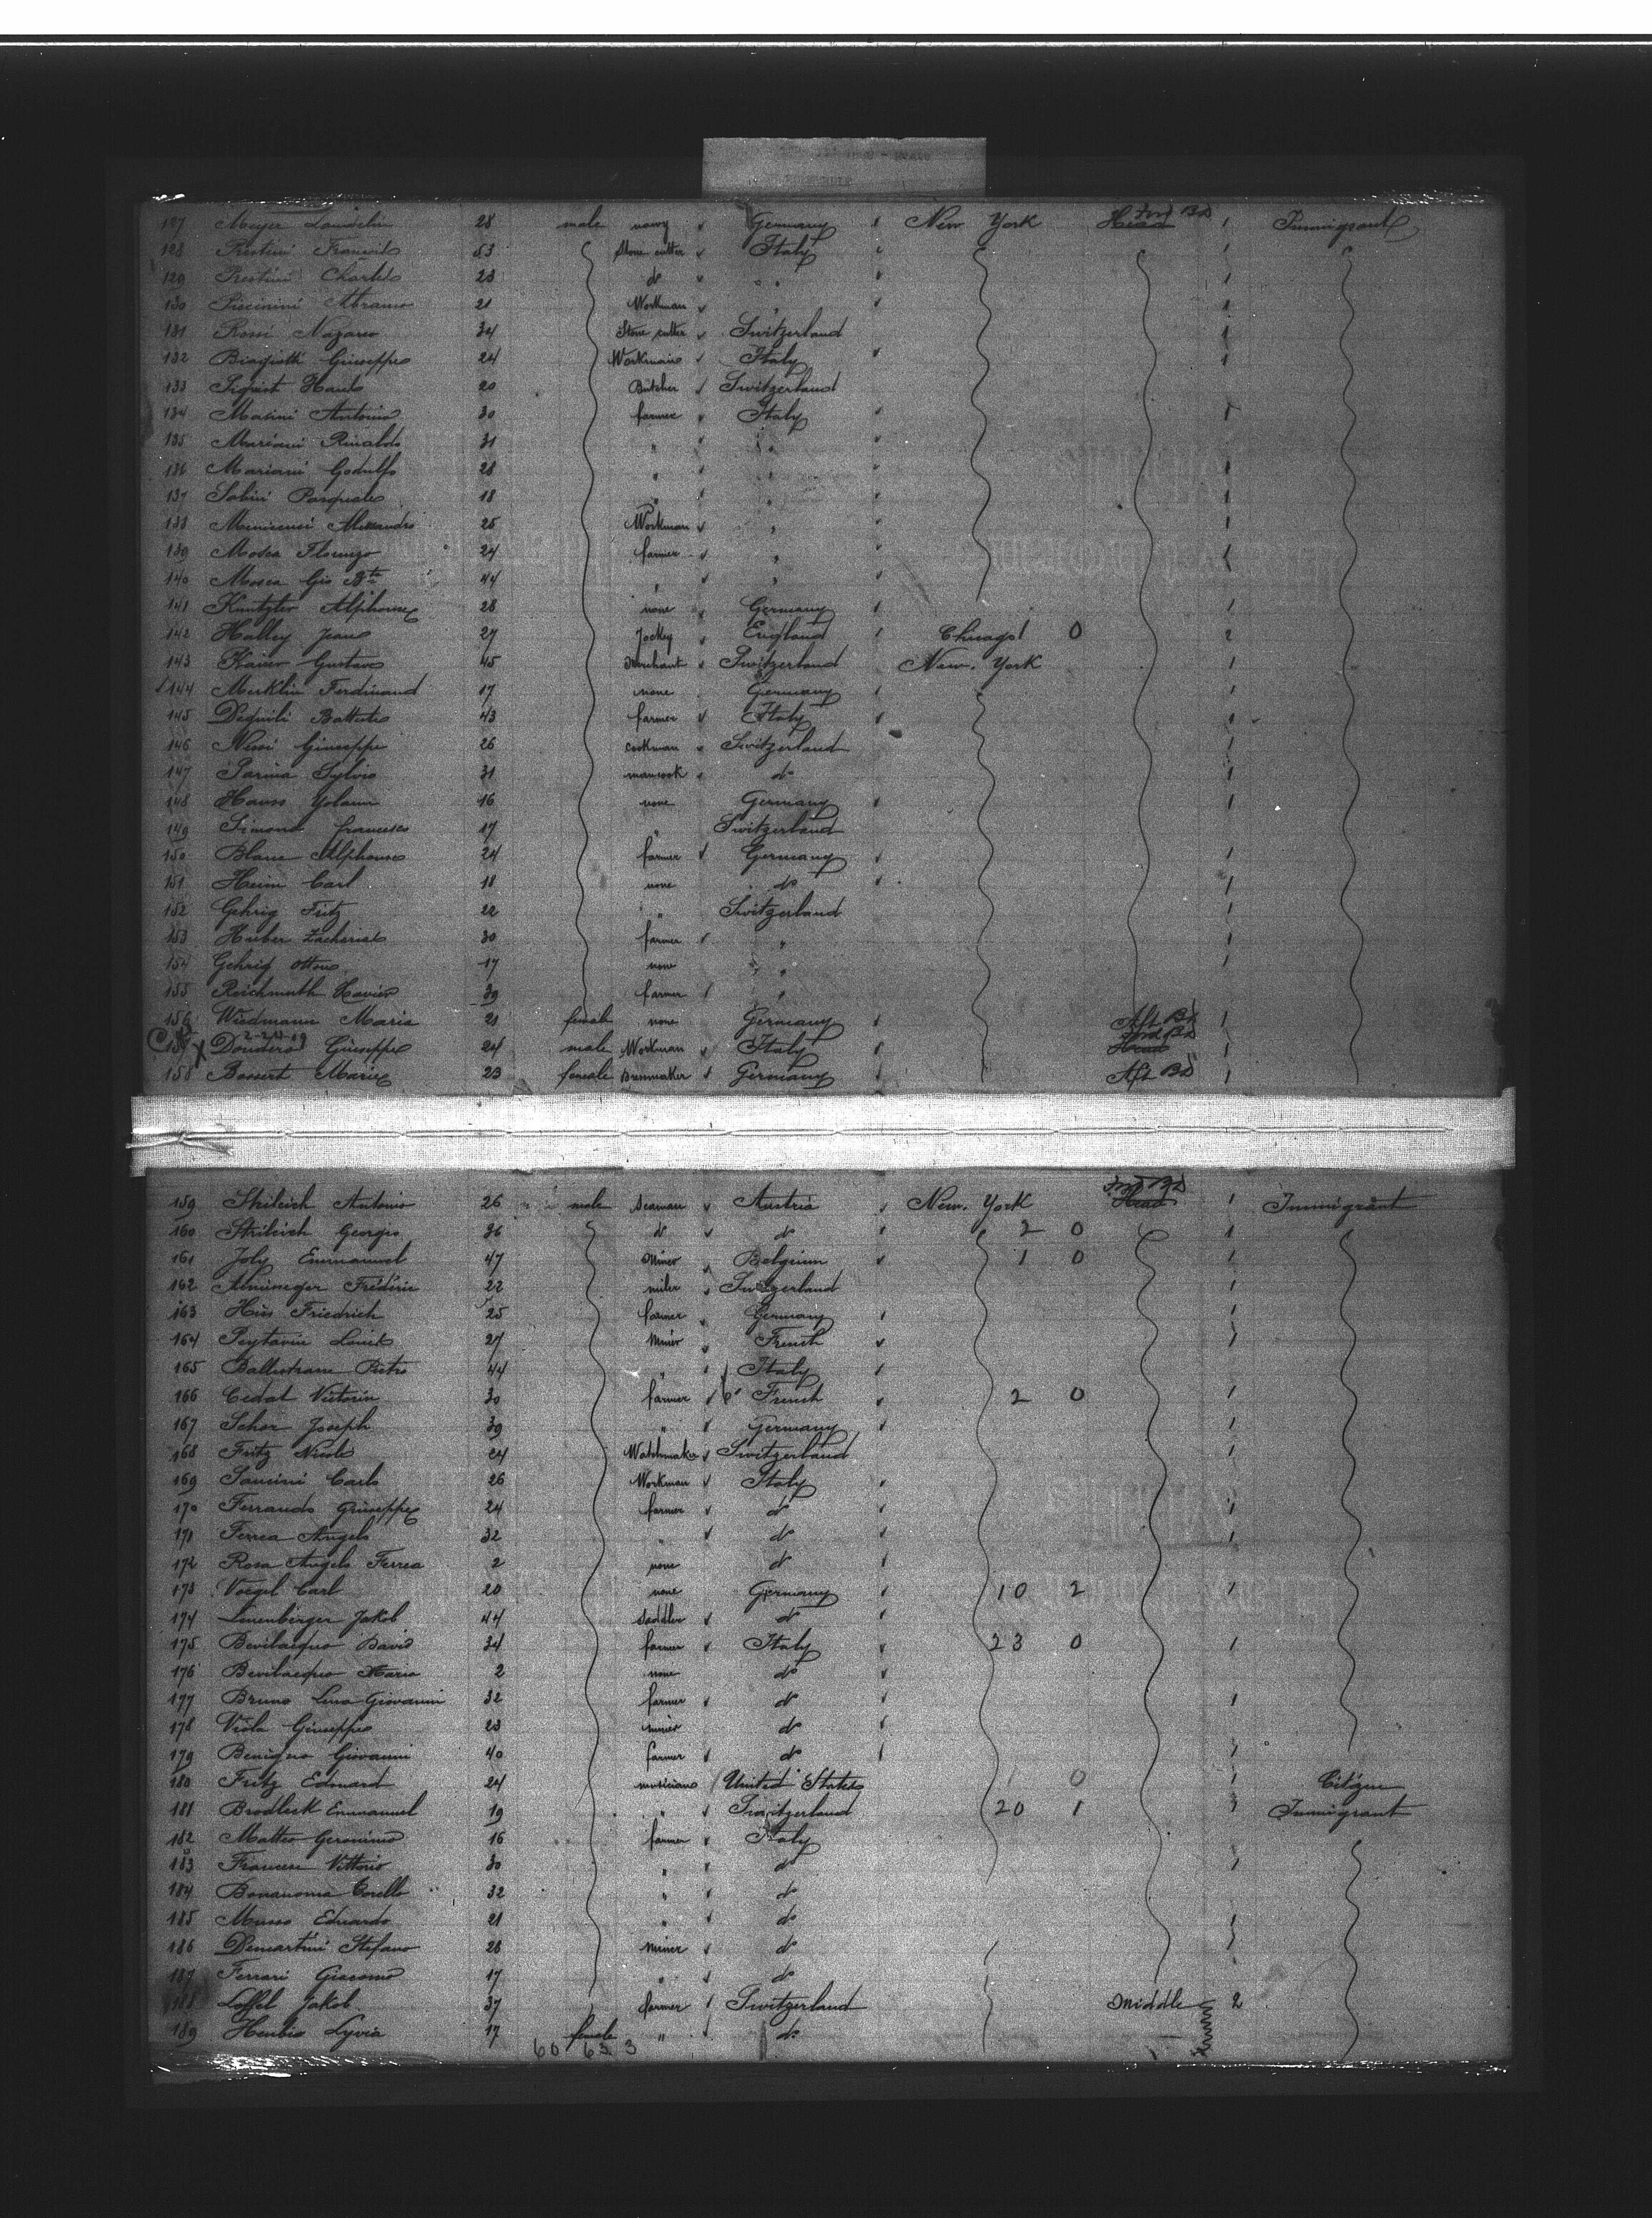 127 Meyer Landelin 28 male navvy Germany New York Fwd BD Immigrant
128 Prestini Francois 53 Stone cutter Italy
129 Prestini Charles 23 do "
130 Piccinini Abramo 21 Workman "
131 Rossi Nazareo 34 Stone cutter Switzerland
132 Biagiotti Giuseppe 24 Workman Italy
133 Sigrist Hans 20 Butcher Switzerland
134 Masini Antonio 30 farmer Italy
135 Mariani Rinaldo 31 " "
136 Mariani Godulfo 28 " "
137 Sabini Pasquale 18 " "
138 Alessandro 25 Workman "
139 Mosca Florenzo 24 farmer "
140 Mosca Gio Bta 44 " "
141 Kuntzler Alphonse 28 none Germany
142 Halley Jean 27 Jockey England Chicago 1 0 2
143 Kaiser Gustave 45 Merchant Switzerland New. York
144 Merklin Ferdinand 17 none Germany
145 Battista 43 farmer Italy
146 Nessi Giuseppe 26 cookman Switzerland
147 Sarina Sylvio 31 mancook do
148 Hauss 16 none Germany
149 Simona francesco 17 " Switzerland
150 Blanc Alphonse 24 farmer Germany
151 Heim Carl 18 none do
152 Gehrig Fritz 22 " Switzerland
153 Huber Zacharias 30 farmer "
154 Gehrig Otton 17 none "
155 Reichmuth Xavier 39 farmer "
156 Wiedmann Maria 21 female none Germany Aft BD
157 Dondero Giuseppe 24 male Workman Italy Fwd BD
158 Bossert Marie 23 female Germany Aft BD
159 Strilcich Antonio 26 male seaman Austria New. York Fwd BD Immigrant
160 Strilcich Georgio 36 do do 2 0
161 Joly Emmanuel 47 Miner Belgium 1 0
162 Frédéric 22 miler Switzerland
163 Friedrich 25 farmer Germany
164 Peytavin Louis 27 Miner French
165 Ballestrare Pietro 44 " Italy
166 Cedat Victorin 30 farmer French 2 0
167 Schor Joseph 39 " Germany
168 Fritz Nicole 24 Watchmaker Switzerland
169 Sancini Carlo 26 Workman Italy
170 Ferrando Giuseppe 24 farmer do
171 Ferrea Angelo 32 " do
172 Rosa Angela Ferrea 2 none do
173 Voegel Carl 20 none Germany 10 2
174 Linenberger Jakob 44 saddler do
175 Bevilacqua David 34 farmer Italy 23 0
176 Bevilacqua Maria 2 none do
177 Bruno Luca Giovanni 32 farmer do
178 Viola Giuseppe 23 miner do
179 Benigno Giovanni 40 farmer do
180 Fritz Edouard 24 musiciano United States 0 Citizen
181 Brodbeck Emmanuel 19 " Switzerland 20 1 Immigrant
182 Matteo Geronimo 16 farmer Italy
183 Vittorio 30 " do
184 Bonanoma 32 " do
185 Musso Eduardo 21 " do
186 Demartini Stefano 28 miner do
187 Ferrari Giacomo 17 " do
188 Loffel Jakob 37 farmer Switzerland Middle 2
189 Lyvia 17 female " do
60 63 3